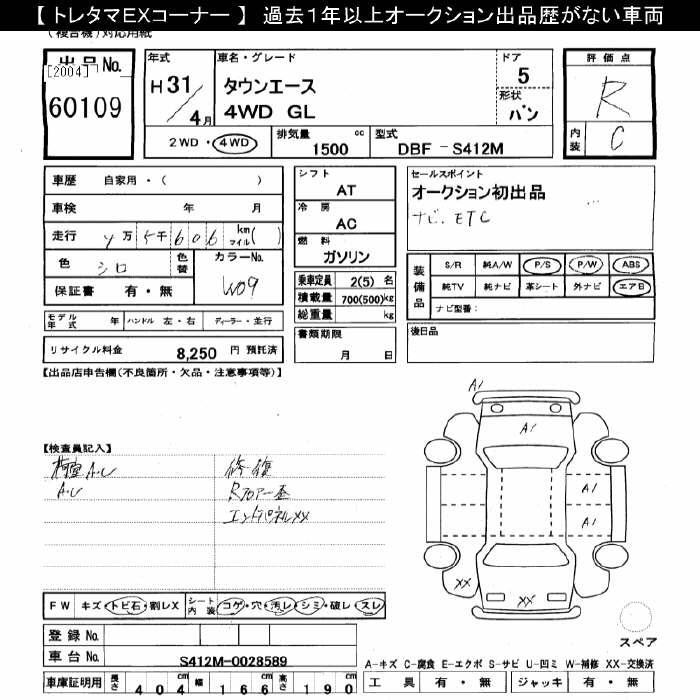 【 トレタマEXコーナー 】 過去1年以上オークション出品歴がない車両
(複合機)対応用紙
出品No.
[2004]
60109
年式
H 31/4月
車名・グレード
タウンエース
4WD GL
ドア
5
形状
バン
評価点
R
内装
C
2WD・4WD
排気量
1500 cc
型式
DBF - S412M
車歴 自家用・( )
車検 年 月
走行 4万5千606 km マイル( )
色 シロ 色替
カラーNo. W09
保証書 有・無
モデル年式 年 ハンドル 左・右 ディーラー・並行
リサイクル料金 8,250 円 預託済
シフト
AT
冷房
AC
燃料
ガソリン
乗車定員 2(5) 名
積載量 700(500)kg
総重量 kg
書類期限
月 日
セールスポイント
オークション初出品
ナビ. ETC
装備品
S/R 純A/W P/S P/W ABS
純TV 純ナビ 革シート 外ナビ エアB
ナビ型番:
後日品
【出品店申告欄(不良箇所・欠品・注意事項等)】
【検査員記入】
荷室A.U
A.U
修復
Rフロアー歪
エンドパネルXX
A1
A1
A1
A1
XX
XX
FW キズ・トビ石・割レX
シート内装 コゲ・穴・汚レ・シミ・破レ・スレ
登録No.
車台No. S412M-0028589
車庫証明用 長さ 404cm 幅 166cm 高さ 190cm
スペア
A-キズ C-腐食 E-エクボ S-サビ U-凹ミ W-補修 XX-交換済
工具 有・無 ジャッキ 有・無